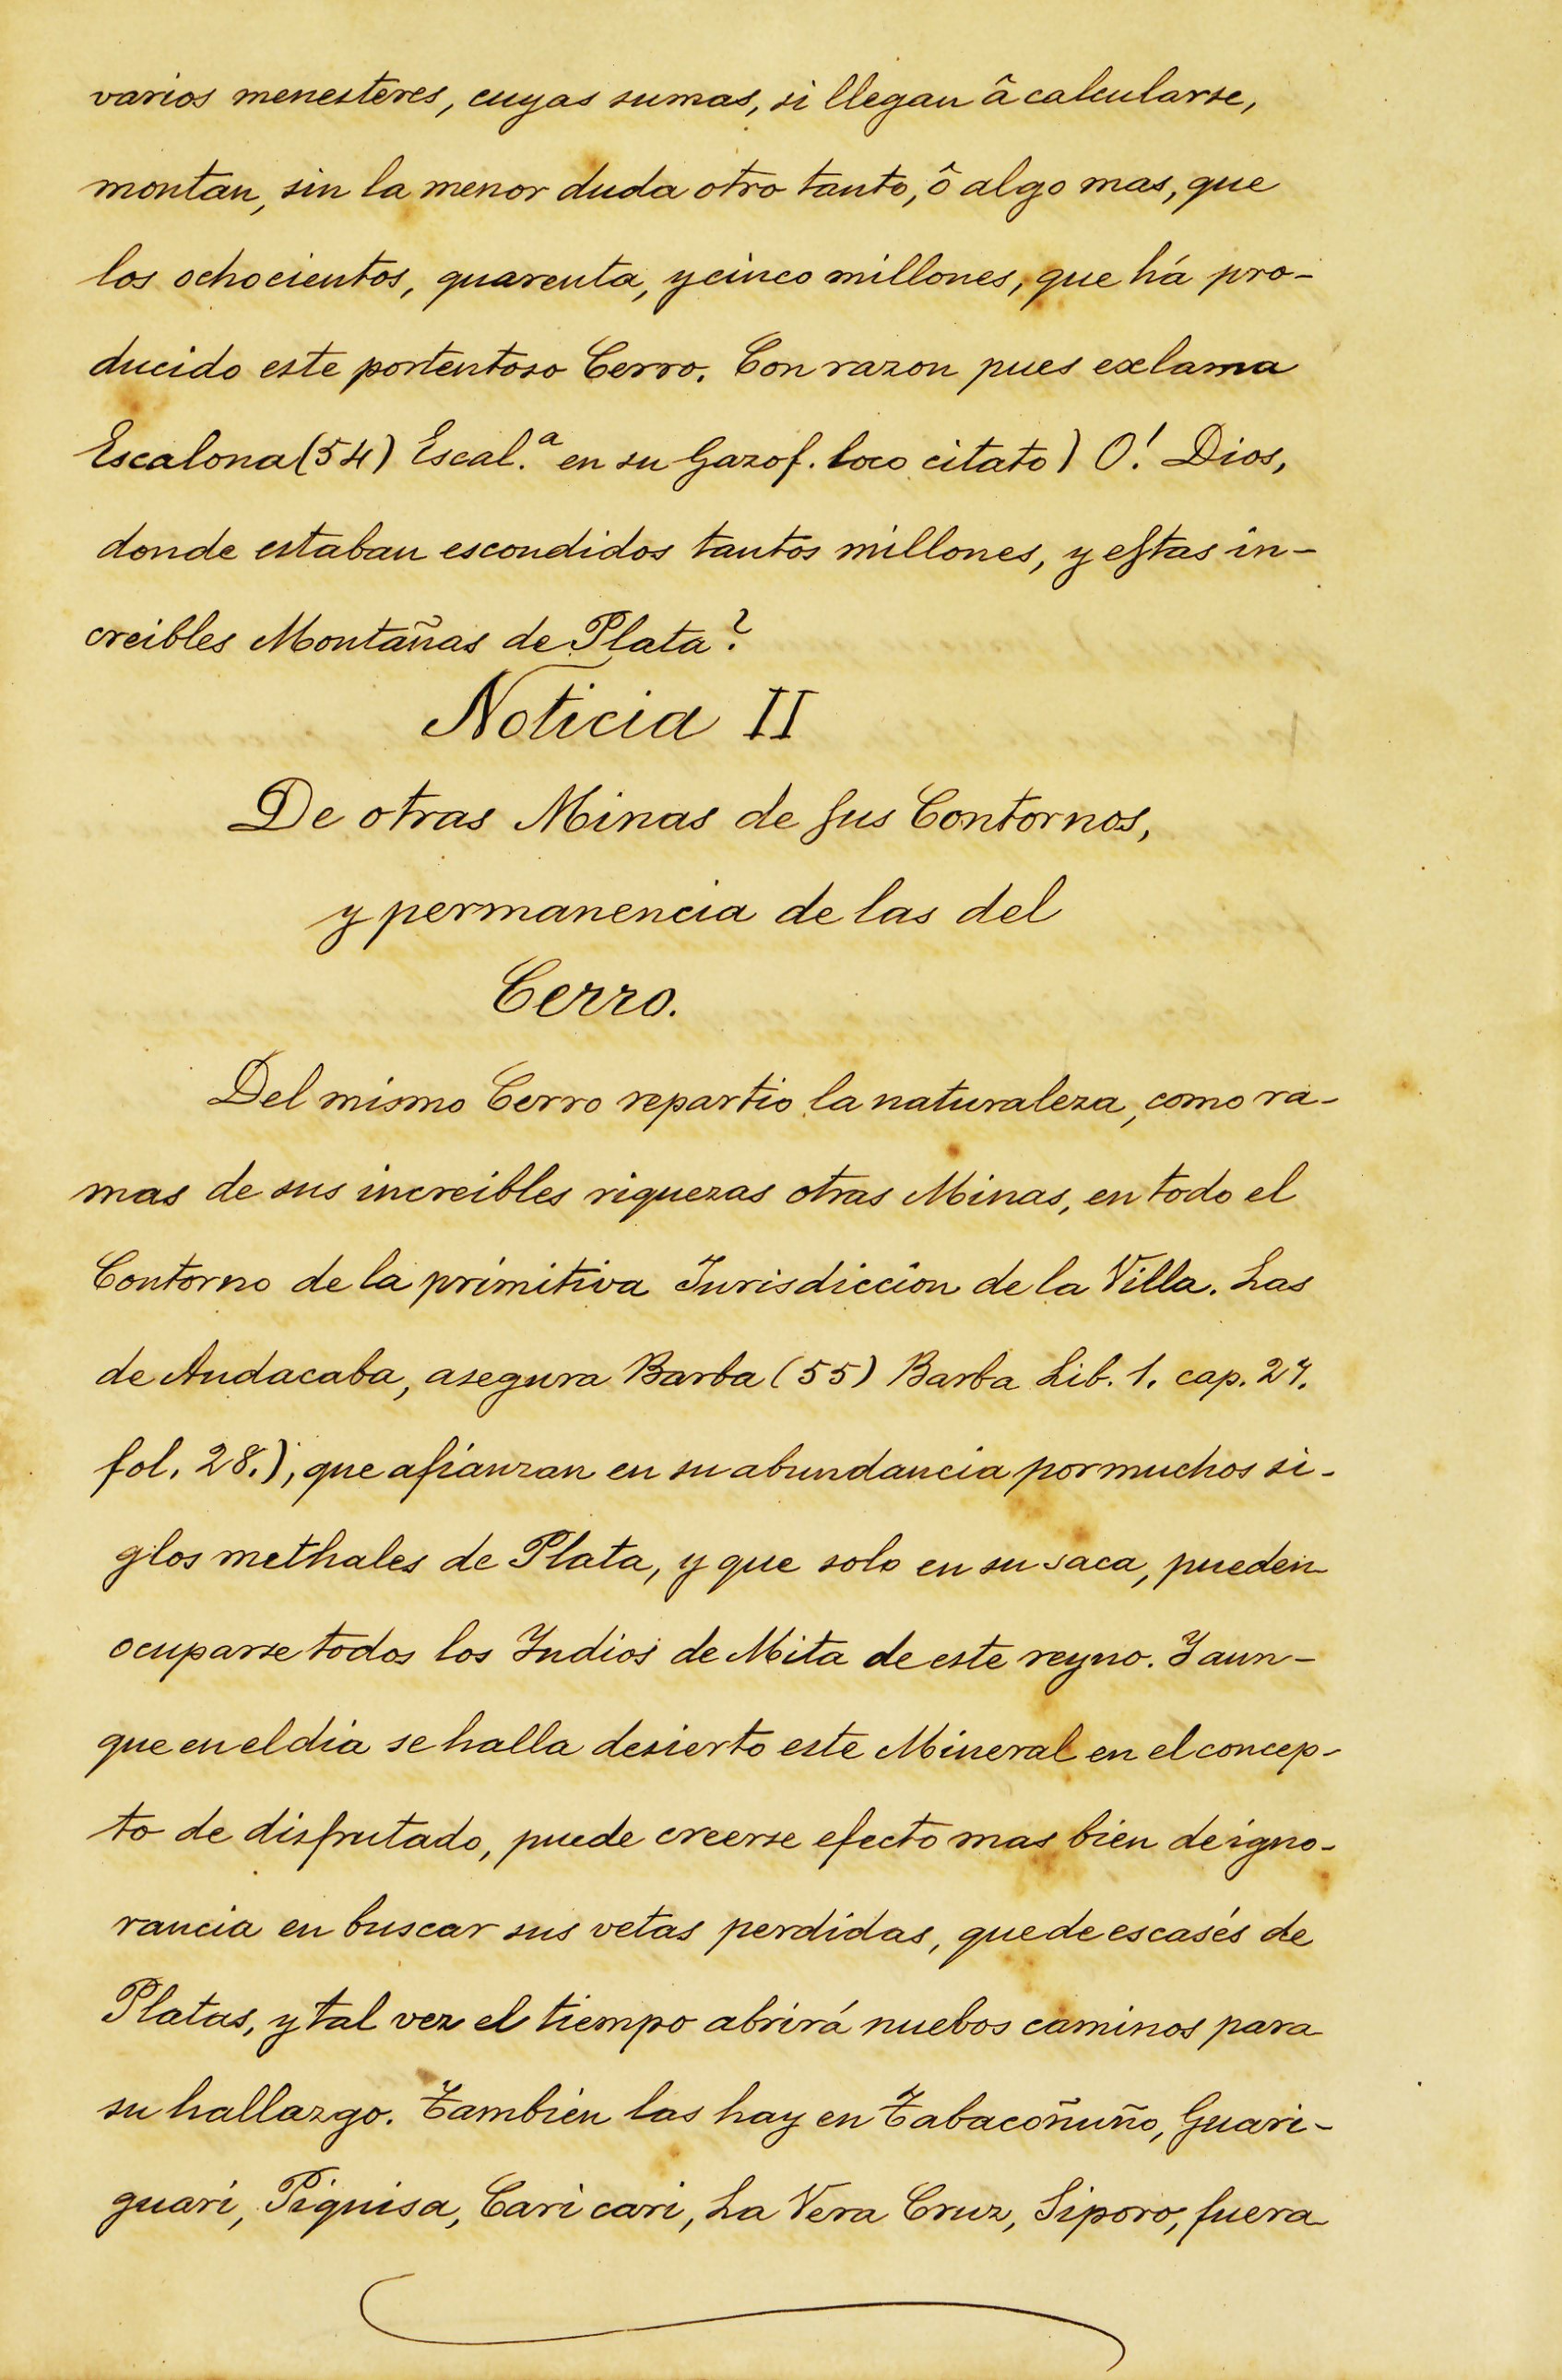 varios menesteres, cuyas sumas, si llegan â calcularse,
montan, sin la menor duda otro tanto, ô algo mas, que
los ochocientos, quarenta, y cinco millones, que há pro-
ducido este portentoso Cerro. Con razon pues exclama
Escalona (54) Escal.ª en su Gazof. loco citato) O! Dios,
donde estaban escondidos tantos millones, y estas in-
creibles Montañas de Plata?
Noticia II
De otras Minas de sus Contornos,
y permanencia de las del
Cerro.
Del mismo Cerro repartio la naturaleza, como ra-
mas de sus increibles riquezas otras Minas, en todo el
Contorno de la primitiva Jurisdiccion de la Villa. Las
de Andacaba, asegura Barba (55) Barba Lib. 1. cap. 27.
fol. 28.), que afianzan en su abundancia por muchos si-
glos methales de Plata, y que solo en su saca, pueden
ocuparse todos los Indios de Mita de este reyno. Y aun-
que en el dia se halla desierto este Mineral en el concep-
to de disfrutado, puede creerse efecto mas bien de igno-
rancia en buscar sus vetas perdidas, que de escasés de
Platas, y tal vez el tiempo abrirá nuebos caminos para
su hallazgo. Tambien las hay en Tabacoñuño, Guari-
guari, Piquisa, Cari cari, La Vera Cruz, Siporo, fuera